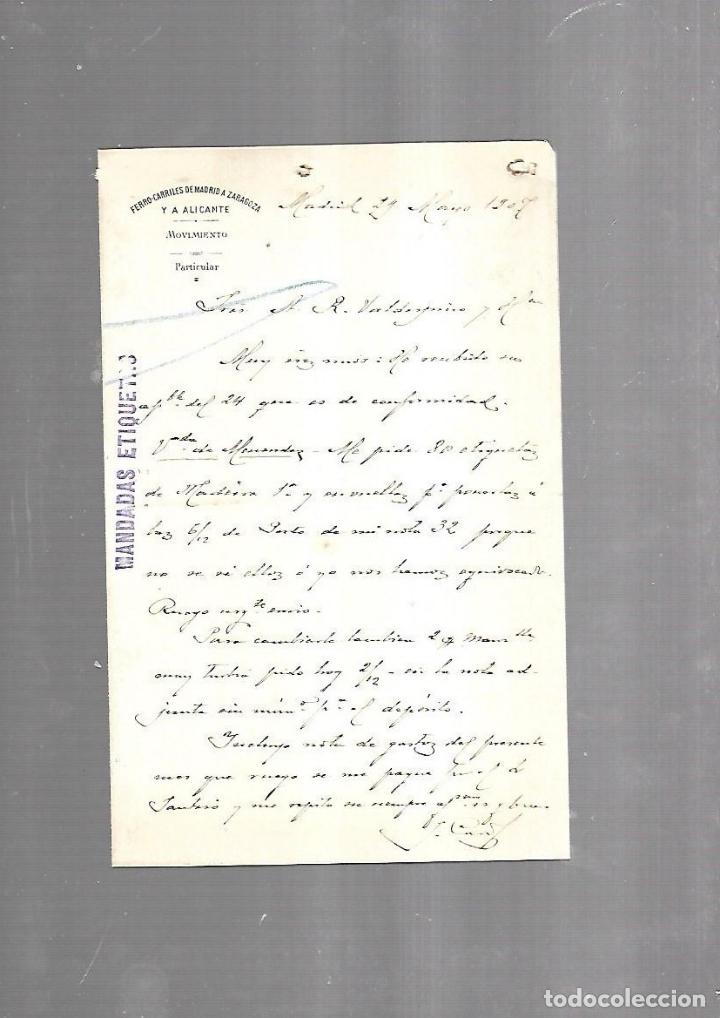 FERRO-CARRILES DE MADRID A ZARAGOZA
Y A ALICANTE
MOVIMIENTO
Particular
Madrid 29 Mayo 1907
Sres A. R. Valdespino y Hno
Muy Sres mios: He recibido su
del 24 que es de conformidad.
Vda de Menendez - Me pide 80 etiquetas
de Madeira 1a y envueltas pa ponerlas á
las 6/12 de Porto de mi nota 32 porque
no se si ellos ó yo nos hemos equivocado.
Ruego urgte envio.
Para cambiarle tambien 2
muy turbia pido hoy 2/12 - en la nota ad-
junta sin núm.o pa el depósito.
Incluyo nota de gastos del presente
mes que ruego se me pague
y me repito su siempre
MANDADAS ETIQUETAS
todocoleccion
todocoleccion.net